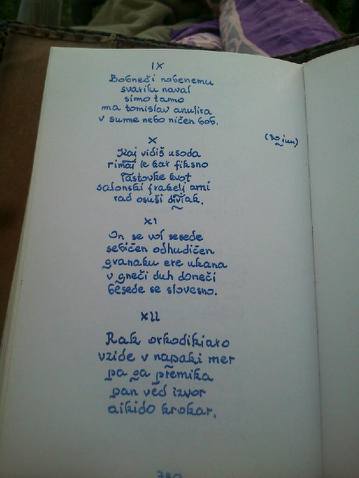 IX
Bobneči nobenemu
svarilu naval
simo tamo
ma tomislav anulira
v sume nebo ničen bob.
X
(30 jun)
Kaj vidiš usoda
rimaj le kar fiksno
lastovke kot
salonski frakelj ami
rad osuši divjak.
XI
On se vol sesede
sebičen odhudičen
granaku ere ukana
v gneči duh doneči
besede se slovesno.
XII
Rak orkodikjaro
vzide v napaki mer
pa ga premika
pan ved izvor
aikido krokar.